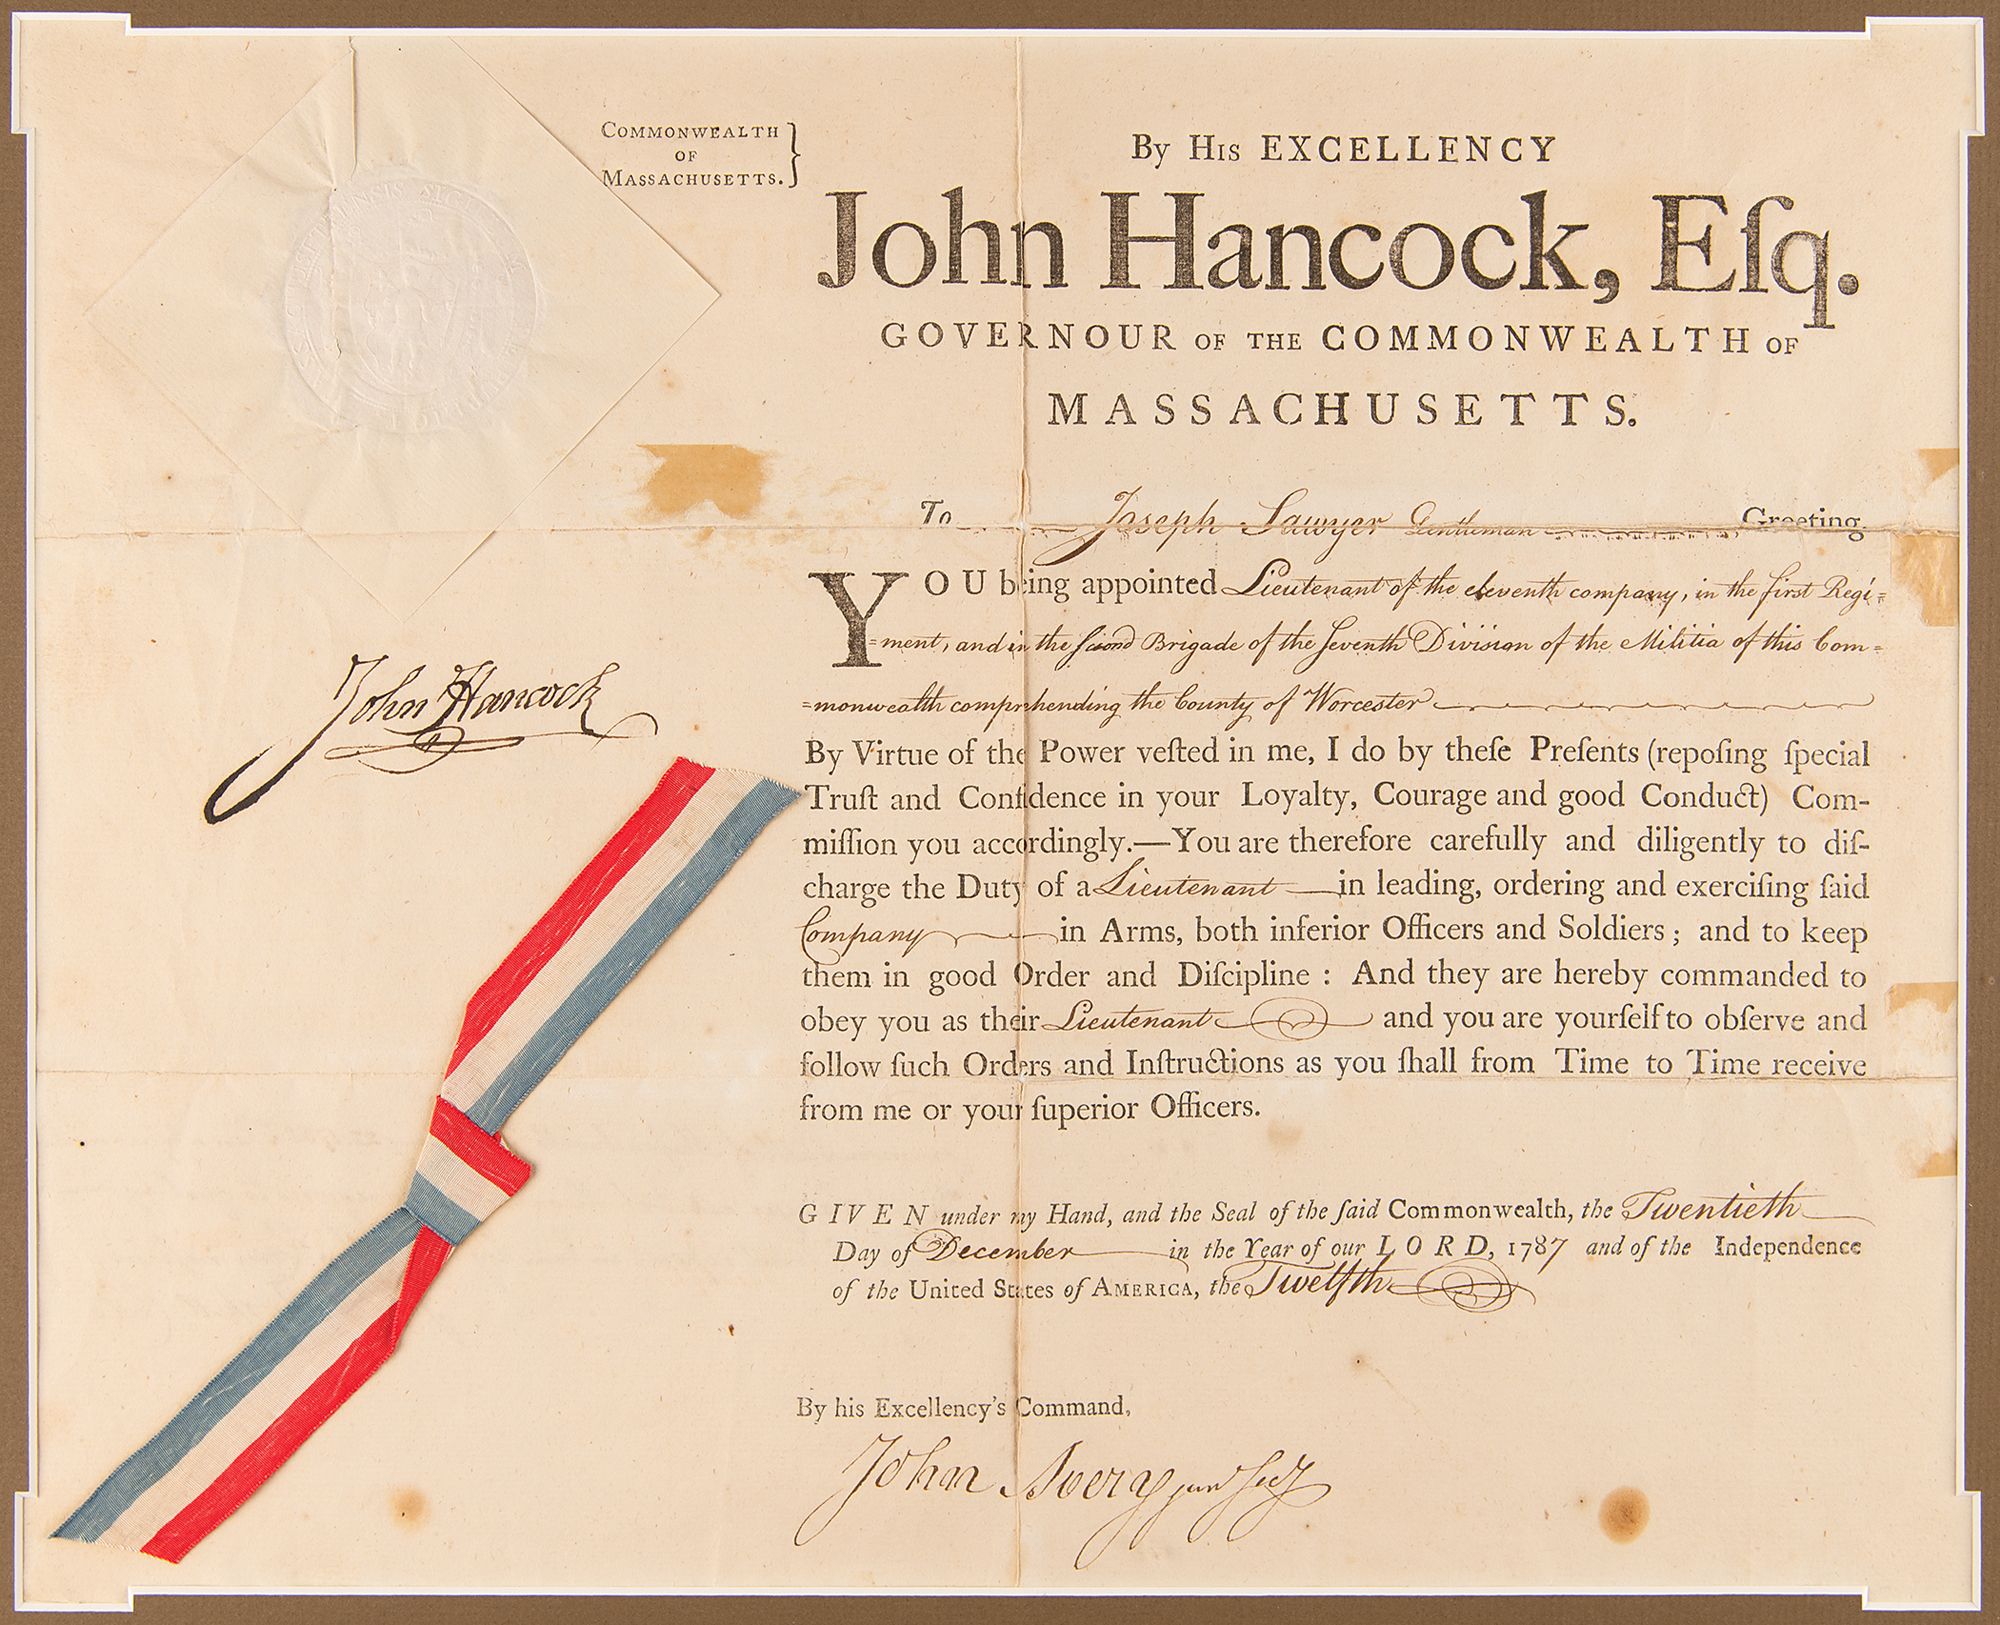 COMMONWEALTH
OF
MASSACHUSETTS.
By His EXCELLENCY
John Hancock, Eſq.
GOVERNOUR OF THE COMMONWEALTH OF
MASSACHUSETTS.
To Joseph Sawyer Gentleman Greeting.
YOU being appointed Lieutenant of the eleventh company, in the first Regi=
=ment, and in the Second Brigade of the Seventh Division of the Militia of this Com=
=monwealth comprehending the County of Worcester
By Virtue of the Power veſted in me, I do by theſe Preſents (repoſing ſpecial
Truſt and Confidence in your Loyalty, Courage and good Conduct) Com-
miſſion you accordingly.—You are therefore carefully and diligently to diſ-
charge the Duty of a Lieutenant in leading, ordering and exerciſing ſaid
Company in Arms, both inferior Officers and Soldiers; and to keep
them in good Order and Diſcipline: And they are hereby commanded to
obey you as their Lieutenant and you are yourſelf to obſerve and
follow ſuch Orders and Inſtructions as you ſhall from Time to Time receive
from me or your ſuperior Officers.
GIVEN under my Hand, and the Seal of the ſaid Commonwealth, the Twentieth
Day of December in the Year of our LORD, 1787 and of the Independence
of the United States of AMERICA, the Twelfth
By his Excellency's Command,
John Avery jun Secy
John Hancock